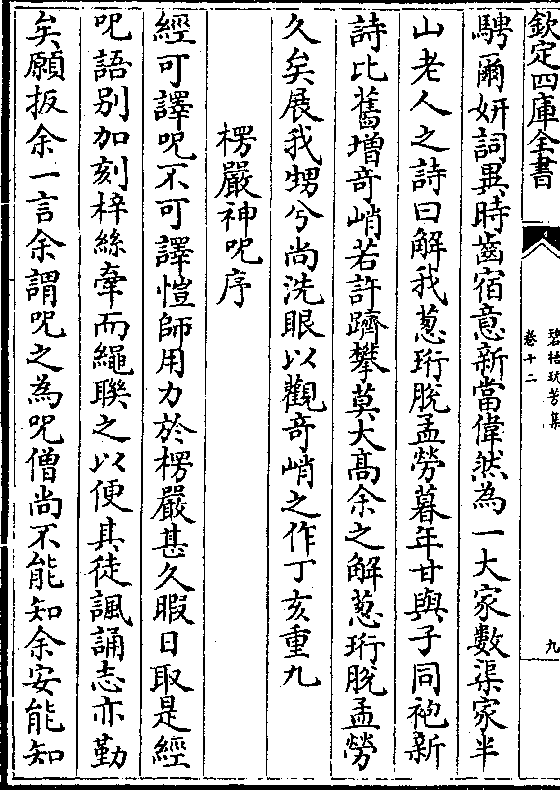 欽定四庫全書
碧梧玩芳集
卷十二
九
騁爾妍詞異時齒宿意新當偉然為一大家數渠家半
山老人之詩曰解我葱珩脫孟勞暮年甘與子同袍新
詩比舊增竒峭若許躋攀莫大髙余之解葱珩脫孟勞
久矣展我甥兮尚洗眼以觀竒峭之作丁亥重九
楞嚴神呪序
經可譯呪不可譯愷師用力於楞嚴甚久暇日取是經
呪語别加刻梓絲牽而繩聨之以便其徒諷誦志亦勤
矣願扳余一言余謂呪之為呪僧尚不能知余安能知